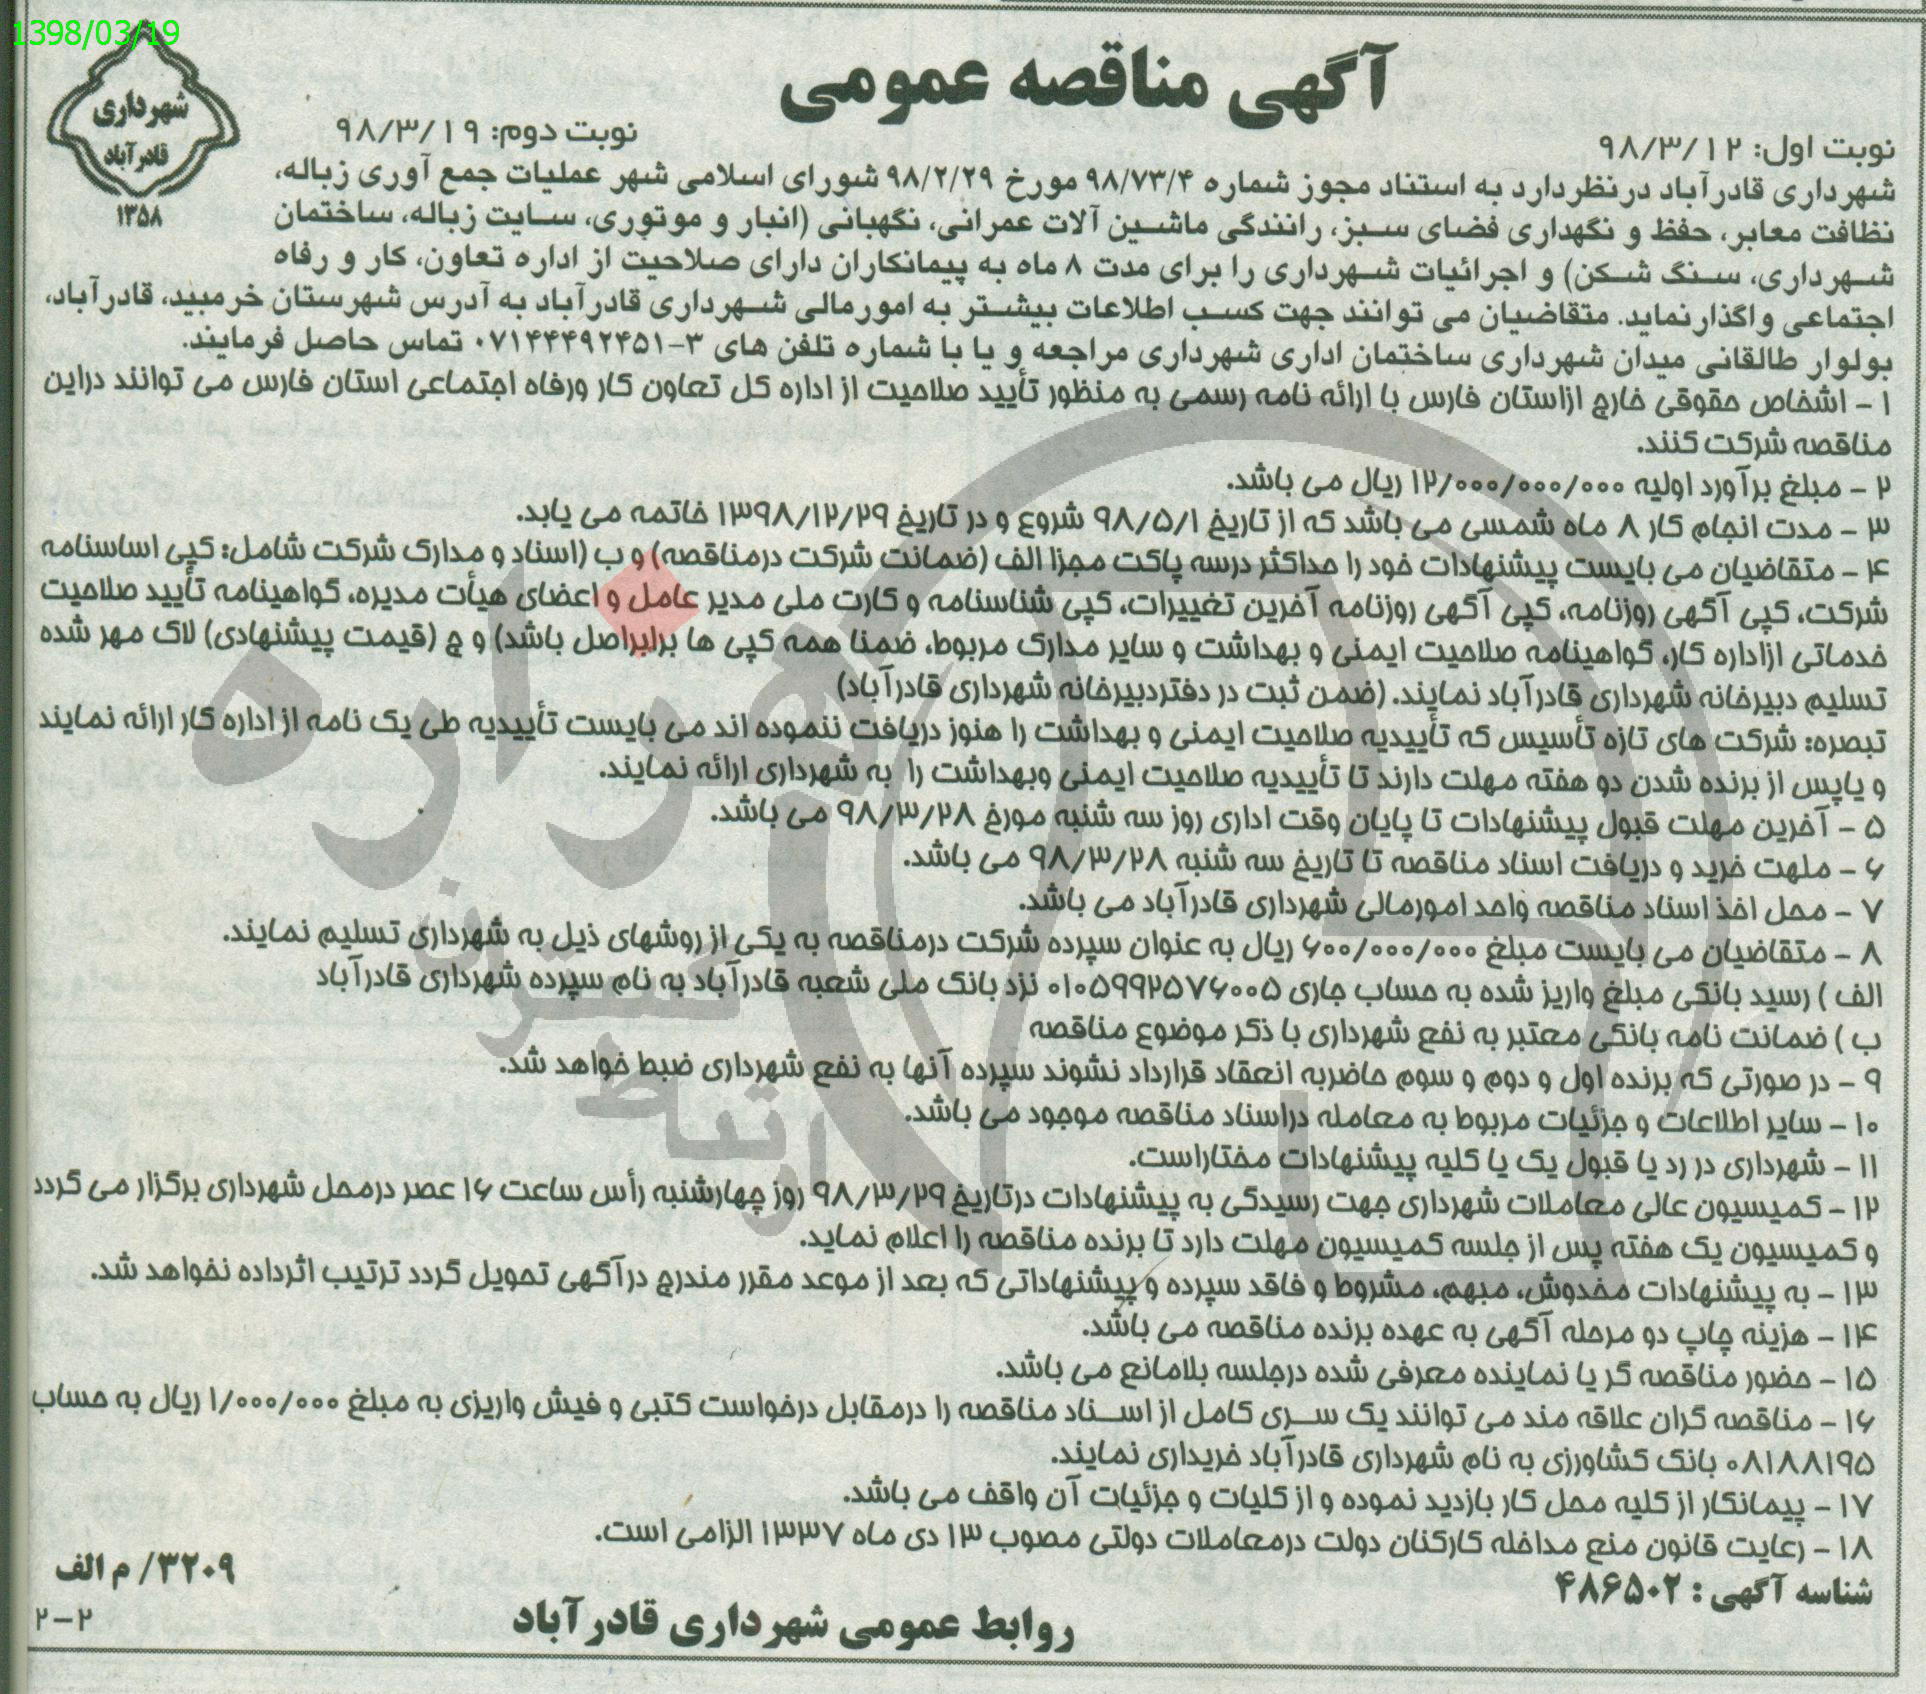 1398/03/19
شهرداری
قادرآباد
۱۳۵۸
آگهی مناقصه عمومی
نوبت اول: ۹۸/۳/۱۲
نوبت دوم: ۹۸/۳/۱۹
شهرداری قادرآباد درنظردارد به استناد مجوز شماره ۹۸/۷۳/۴ مورخ ۹۸/۲/۲۹ شورای اسلامی شهر عملیات جمع آوری زباله،
نظافت معابر، حفظ و نگهداری فضای سبز، رانندگی ماشین آلات عمرانی، نگهبانی (انبار و موتوری، سایت زباله، ساختمان
شهرداری، سنگ شکن) و اجرائیات شهرداری را برای مدت ۸ ماه به پیمانکاران دارای صلاحیت از اداره تعاون، کار و رفاه
اجتماعی واگذارنماید. متقاضیان می توانند جهت کسب اطلاعات بیشتر به امورمالی شهرداری قادرآباد به آدرس شهرستان خرمبید، قادرآباد،
بولوار طالقانی میدان شهرداری ساختمان اداری شهرداری مراجعه و یا با شماره تلفن های ۳-۰۷۱۴۴۴۹۲۴۵۱ تماس حاصل فرمایند.
۱ - اشخاص حقوقی خارج ازاستان فارس با ارائه نامه رسمی به منظور تأیید صلاحیت از اداره کل تعاون کار ورفاه اجتماعی استان فارس می توانند دراین
مناقصه شرکت کنند.
۲ - مبلغ برآورد اولیه ۱۲/۰۰۰/۰۰۰/۰۰۰ ریال می باشد.
۳ - مدت انجام کار ۸ ماه شمسی می باشد که از تاریخ ۹۸/۵/۱ شروع و در تاریخ ۱۳۹۸/۱۲/۲۹ خاتمه می یابد.
۴ - متقاضیان می بایست پیشنهادات خود را حداکثر درسه پاکت مجزا الف (ضمانت شرکت درمناقصه) و ب (اسناد و مدارک شرکت شامل: کپی اساسنامه
شرکت، کپی آگهی روزنامه، کپی آگهی روزنامه آخرین تغییرات، کپی شناسنامه و کارت ملی مدیر عامل و اعضای هیأت مدیره، گواهینامه تأیید صلاحیت
خدماتی ازاداره کار، گواهینامه صلاحیت ایمنی و بهداشت و سایر مدارک مربوط، ضمنا همه کپی ها برابراصل باشد) و ج (قیمت پیشنهادی) لاک مهر شده
تسلیم دبیرخانه شهرداری قادرآباد نمایند. (ضمن ثبت در دفتردبیرخانه شهرداری قادرآباد)
تبصره: شرکت های تازه تأسیس که تأییدیه صلاحیت ایمنی و بهداشت را هنوز دریافت ننموده اند می بایست تأییدیه طی یک نامه از اداره کار ارائه نمایند
و یاپس از برنده شدن دو هفته مهلت دارند تا تأییدیه صلاحیت ایمنی وبهداشت را به شهرداری ارائه نمایند.
۵ - آخرین مهلت قبول پیشنهادات تا پایان وقت اداری روز سه شنبه مورخ ۹۸/۳/۲۸ می باشد.
۶ - ملهت خرید و دریافت اسناد مناقصه تا تاریخ سه شنبه ۹۸/۳/۲۸ می باشد.
۷ - محل اخذ اسناد مناقصه واحد امورمالی شهرداری قادرآباد می باشد.
۸ - متقاضیان می بایست مبلغ ۶۰۰/۰۰۰/۰۰۰ ریال به عنوان سپرده شرکت درمناقصه به یکی از روشهای ذیل به شهرداری تسلیم نمایند.
الف ) رسید بانکی مبلغ واریز شده به حساب جاری ۰۱۰۵۹۹۲۵۷۶۰۰۵ نزد بانک ملی شعبه قادرآباد به نام سپرده شهرداری قادرآباد
ب ) ضمانت نامه بانکی معتبر به نفع شهرداری با ذکر موضوع مناقصه
۹ - در صورتی که برنده اول و دوم و سوم حاضربه انعقاد قرارداد نشوند سپرده آنها به نفع شهرداری ضبط خواهد شد.
۱۰ - سایر اطلاعات و جزئیات مربوط به معامله دراسناد مناقصه موجود می باشد.
۱۱ - شهرداری در رد یا قبول یک یا کلیه پیشنهادات مختاراست.
۱۲ - کمیسیون عالی معاملات شهرداری جهت رسیدگی به پیشنهادات درتاریخ ۹۸/۳/۲۹ روز چهارشنبه رأس ساعت ۱۶ عصر درمحل شهرداری برگزار می گردد
و کمیسیون یک هفته پس از جلسه کمیسیون مهلت دارد تا برنده مناقصه را اعلام نماید.
۱۳ - به پیشنهادات مخدوش، مبهم، مشروط و فاقد سپرده و پیشنهاداتی که بعد از موعد مقرر مندرج درآگهی تحویل گردد ترتیب اثرداده نخواهد شد.
۱۴ - هزینه چاپ دو مرحله آگهی به عهده برنده مناقصه می باشد.
۱۵ - حضور مناقصه گر یا نماینده معرفی شده درجلسه بلامانع می باشد.
۱۶ - مناقصه گران علاقه مند می توانند یک سری کامل از اسناد مناقصه را درمقابل درخواست کتبی و فیش واریزی به مبلغ ۱/۰۰۰/۰۰۰ ریال به حساب
۰۸۱۸۸۱۹۵ بانک کشاورزی به نام شهرداری قادرآباد خریداری نمایند.
۱۷ - پیمانکار از کلیه محل کار بازدید نموده و از کلیات و جزئیات آن واقف می باشد.
۱۸ - رعایت قانون منع مداخله کارکنان دولت درمعاملات دولتی مصوب ۱۳ دی ماه ۱۳۳۷ الزامی است.
شناسه آگهی : ۴۸۶۵۰۲
۳۲۰۹/ م الف
روابط عمومی شهرداری قادرآباد
۲-۲
هزاره
گستران
ارتباط